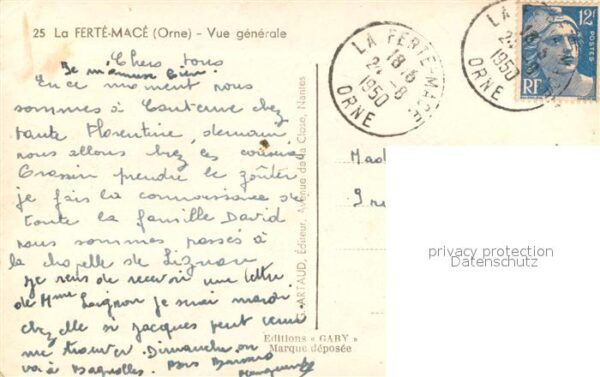 25 La FERTÉ-MACÉ (Orne) - Vue générale
Chers tous
Je m'amuse bien.
En ce moment nous
sommes à Couterne chez
tante Florentine, demain
nous allons chez les cousins
Grassin prendre le goûter
je fais la connaissance de
toute la famille David
nous sommes passés à
la chapelle de Lignou
je viens de recevoir une lettre
de Mme Loignon je serai mardi
chez elle si Jacques peut venir
me trouver. Dimanche on
va à Bagnoles. Bons Baisers
G. ARTAUD, Éditeur, Avenue de la Close, Nantes
Editions « GABY »
Marque déposée
LA FERTÉ-MACÉ
18H
24-8
1950
ORNE
LA FERTÉ
18H
24-8
1950
ORNE
12F
RF
Mad
privacy protection
Datenschutz